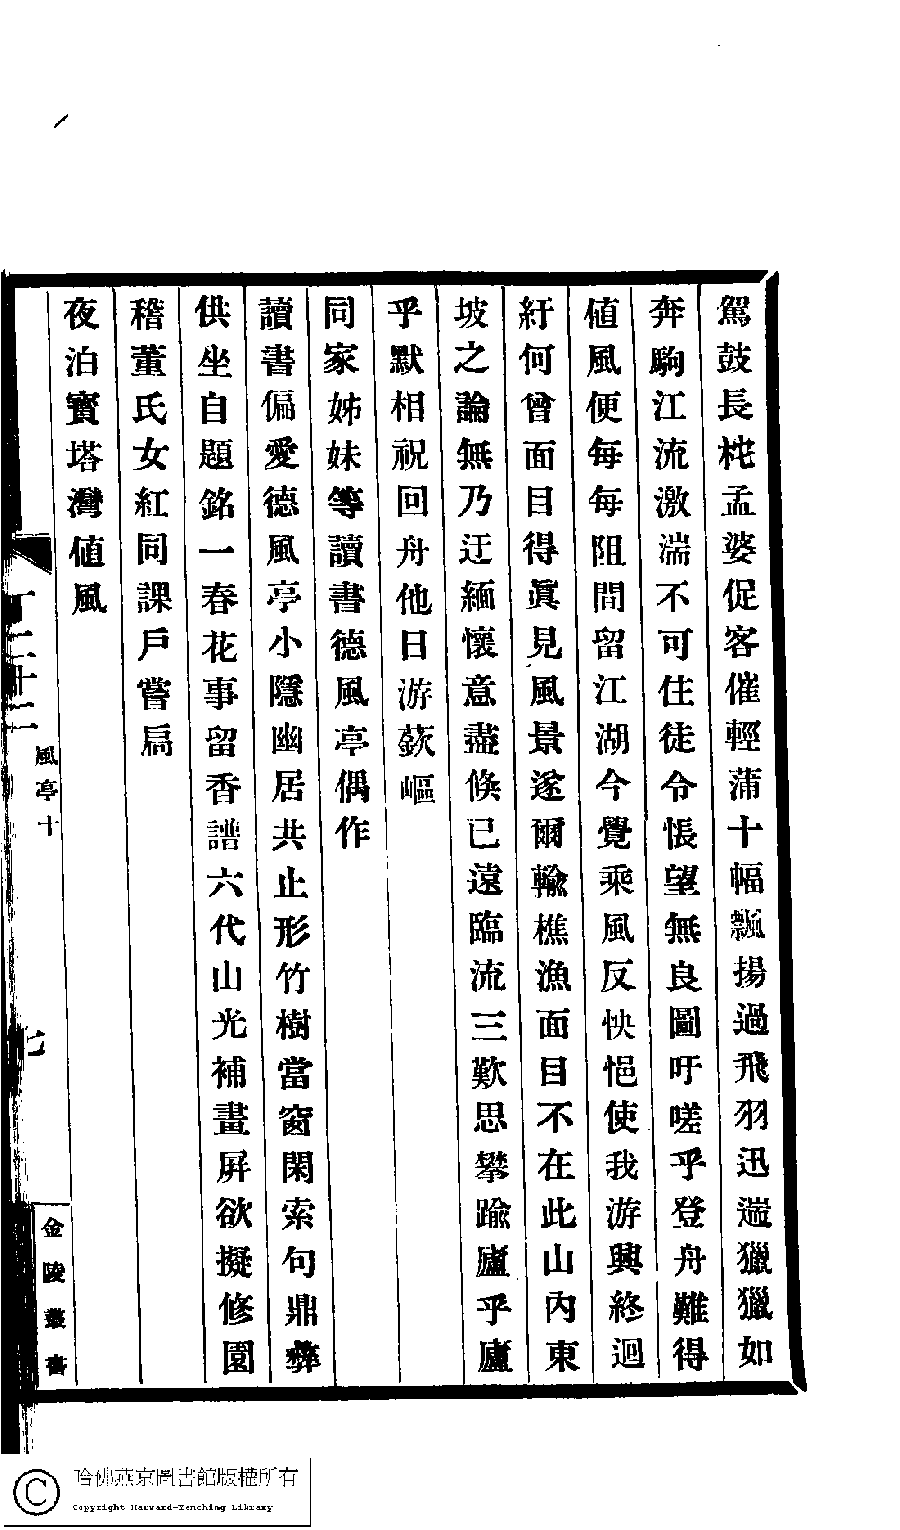 駕鼓長枕孟婆促客催輕蒲十幅飄揚過飛羽迅遄獵獵如
奔駒江流激湍不可住徒令悵望無良圖吁嗟乎登舟難得
値風便每每阻間留江湖今覺乘風反怏悒使我游興終迴
紆何曾面目得眞見風景遂爾輸樵漁面目不在此山內東
坡之論無乃迂緬懷意盡倏已遠臨流三歎思攀踰廬乎廬
乎默相祝回舟他日游嶔嶇
同家姊妹等讀書德風亭偶作
讀書偏愛德風亭小隱幽居共止形竹樹當窗閑索句鼎彝
供坐自題銘一春花事留香譜六代山光補畫屏欲擬修園
稽董氏女紅同課戶嘗扃
夜泊寶塔灣値風
二十二
風亭十
七
金陵叢書
哈佛燕京圖書館版權所有
Copyright Harvard-Yenching Library